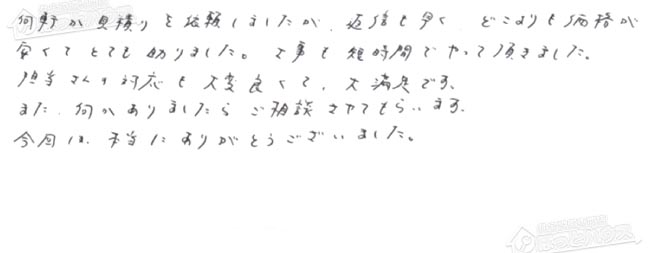 何軒か見積りを依頼しましたが、返信も早く、どこよりも価格が
安くてとても助りました。工事も短時間でやって頂きました。
担当さんの対応も大変良くて、大満足です。
また、何かありましたらご相談させてもらいます。
今回は、本当にありがとうございました。